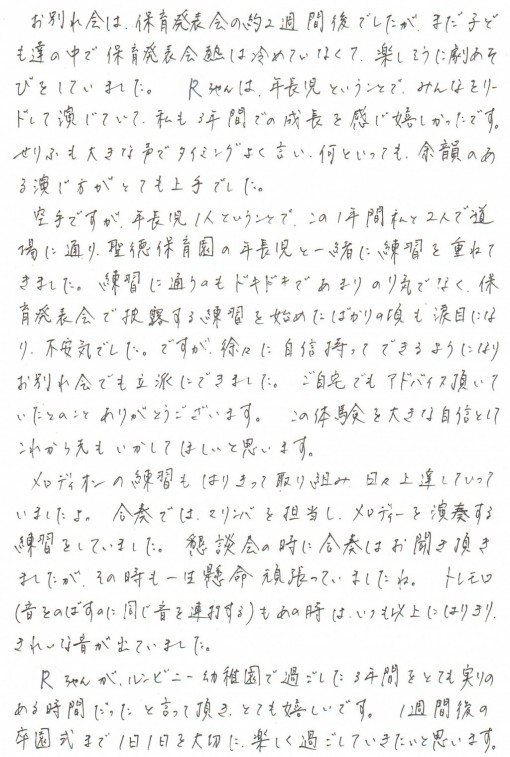 お別れ会は、保育発表会の約2週間後でしたが、まだ子ど
も達の中で保育発表会熱は冷めていなくて、楽しそうに劇あそ
びをしていました。 Rちゃんは、年長児ということで、みんなをリー
ドして演じていて、私も3年間での成長を感じ嬉しかったです。
せりふも大きな声でタイミングよく言い、何といっても、余韻のあ
る演じ方がとても上手でした。
空手ですが、年長児1人ということで、この1年間私と2人で道
場に通り、聖徳保育園の年長児と一緒に練習を重ねて
きました。練習に通うのもドキドキであまりのり気でなく、保
育発表会で披露する練習を始めたばかりの頃も涙目にな
り、不安気でした。ですが、徐々に自信持ってできるようになり
お別れ会でも立派にできました。 ご自宅でもアドバイス頂いて
いたとのことありがとうございます。 この体験を大きな自信として
これから先もいかしてほしいと思います。
メロディオンの練習もはりきって取り組み、日々上達していって
いましたよ。 合奏では、マリンバを担当し、メロディーを演奏する
練習をしていました。 懇談会の時に合奏はお聞き頂き
ましたが、その時も一生懸命頑張っていましたね。 トレモロ
(音をのばすのに同じ音を連打する)もあの時は、いつも以上にはりきり、
きれいな音が出ていました。
Rちゃんが、ルンビニー幼稚園で過ごした3年間をとても実りの
ある時間だったと言って頂き、とても嬉しいです。 1週間後の
卒園式まで1日1日を大切に、楽しく過ごしていきたいと思います。